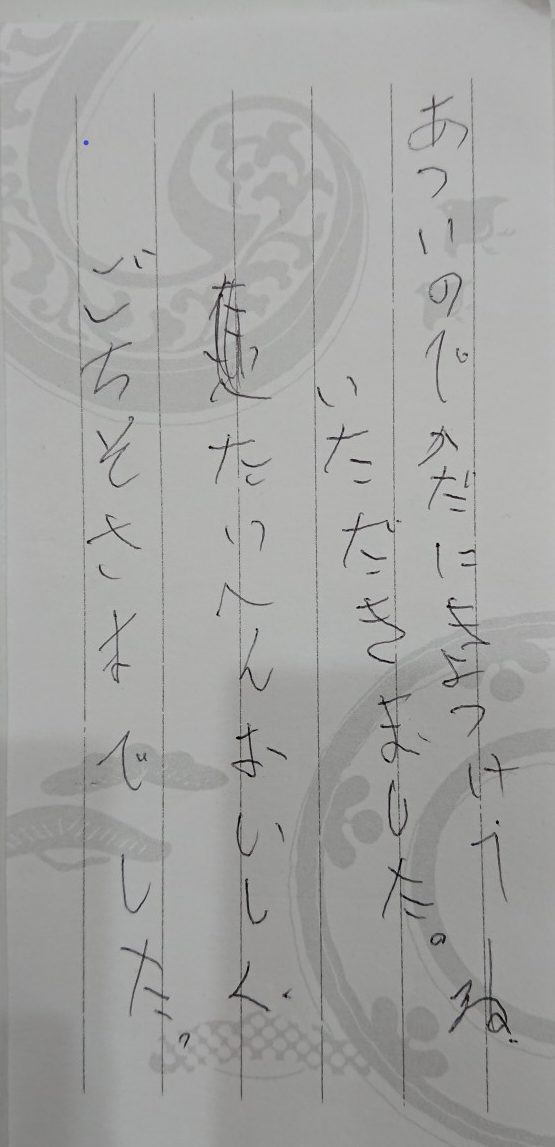 あついのでかだにきよつけてね
いただきました。
たいへんおいしく
ごちそさまでした。